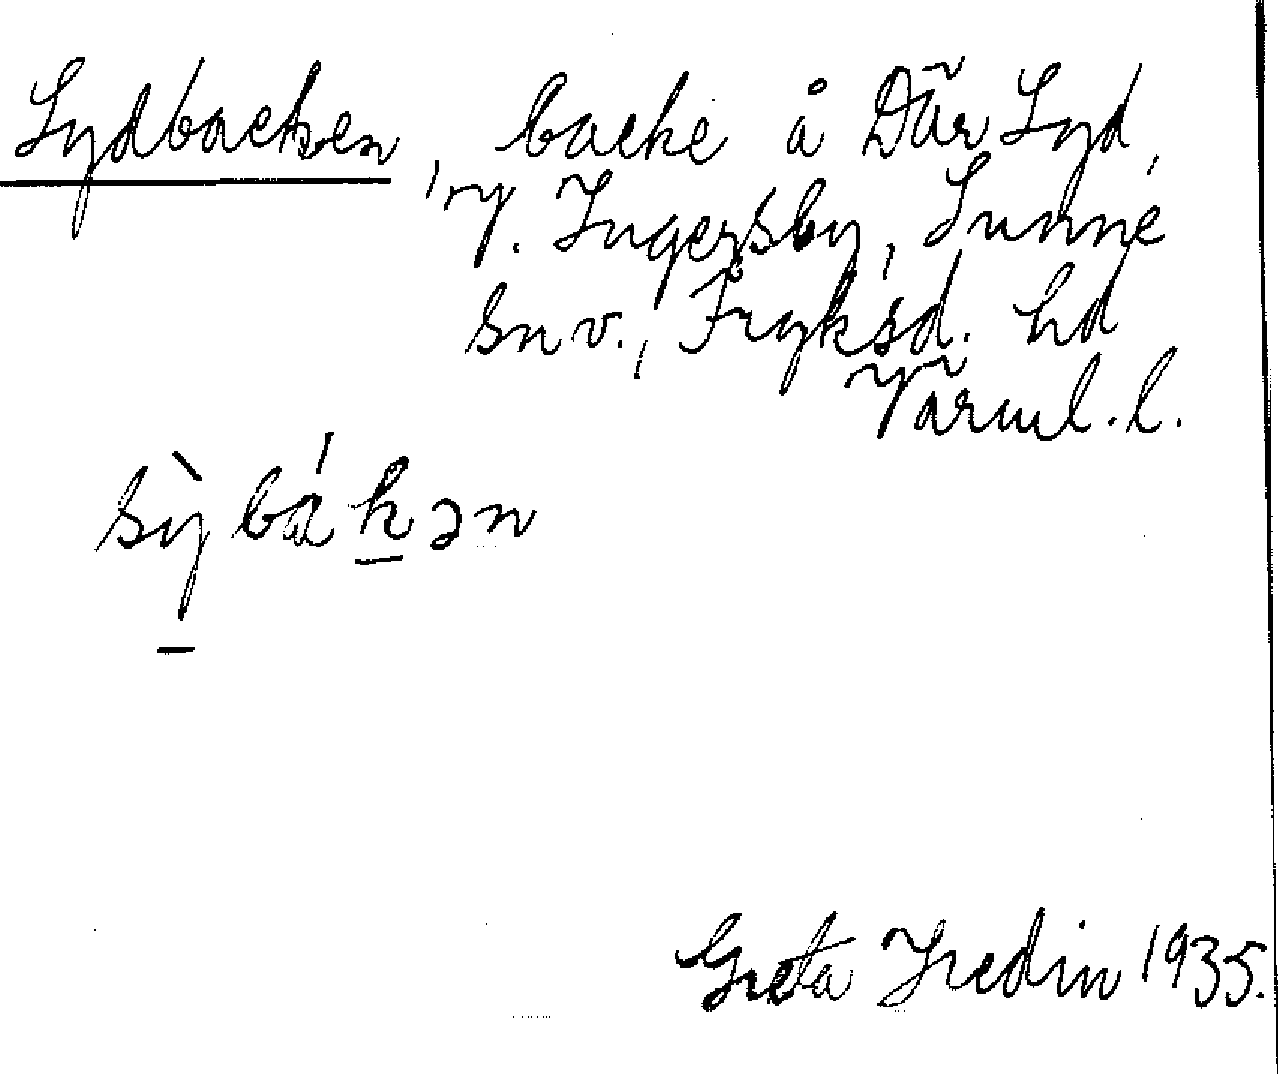 Sydbacken, backe å Där Syd,
V. Ingersby, Sunne
sn v., Fryksd. hd
Värml. l.
sỳ̠bák̠ən
Greta Fredin 1935.